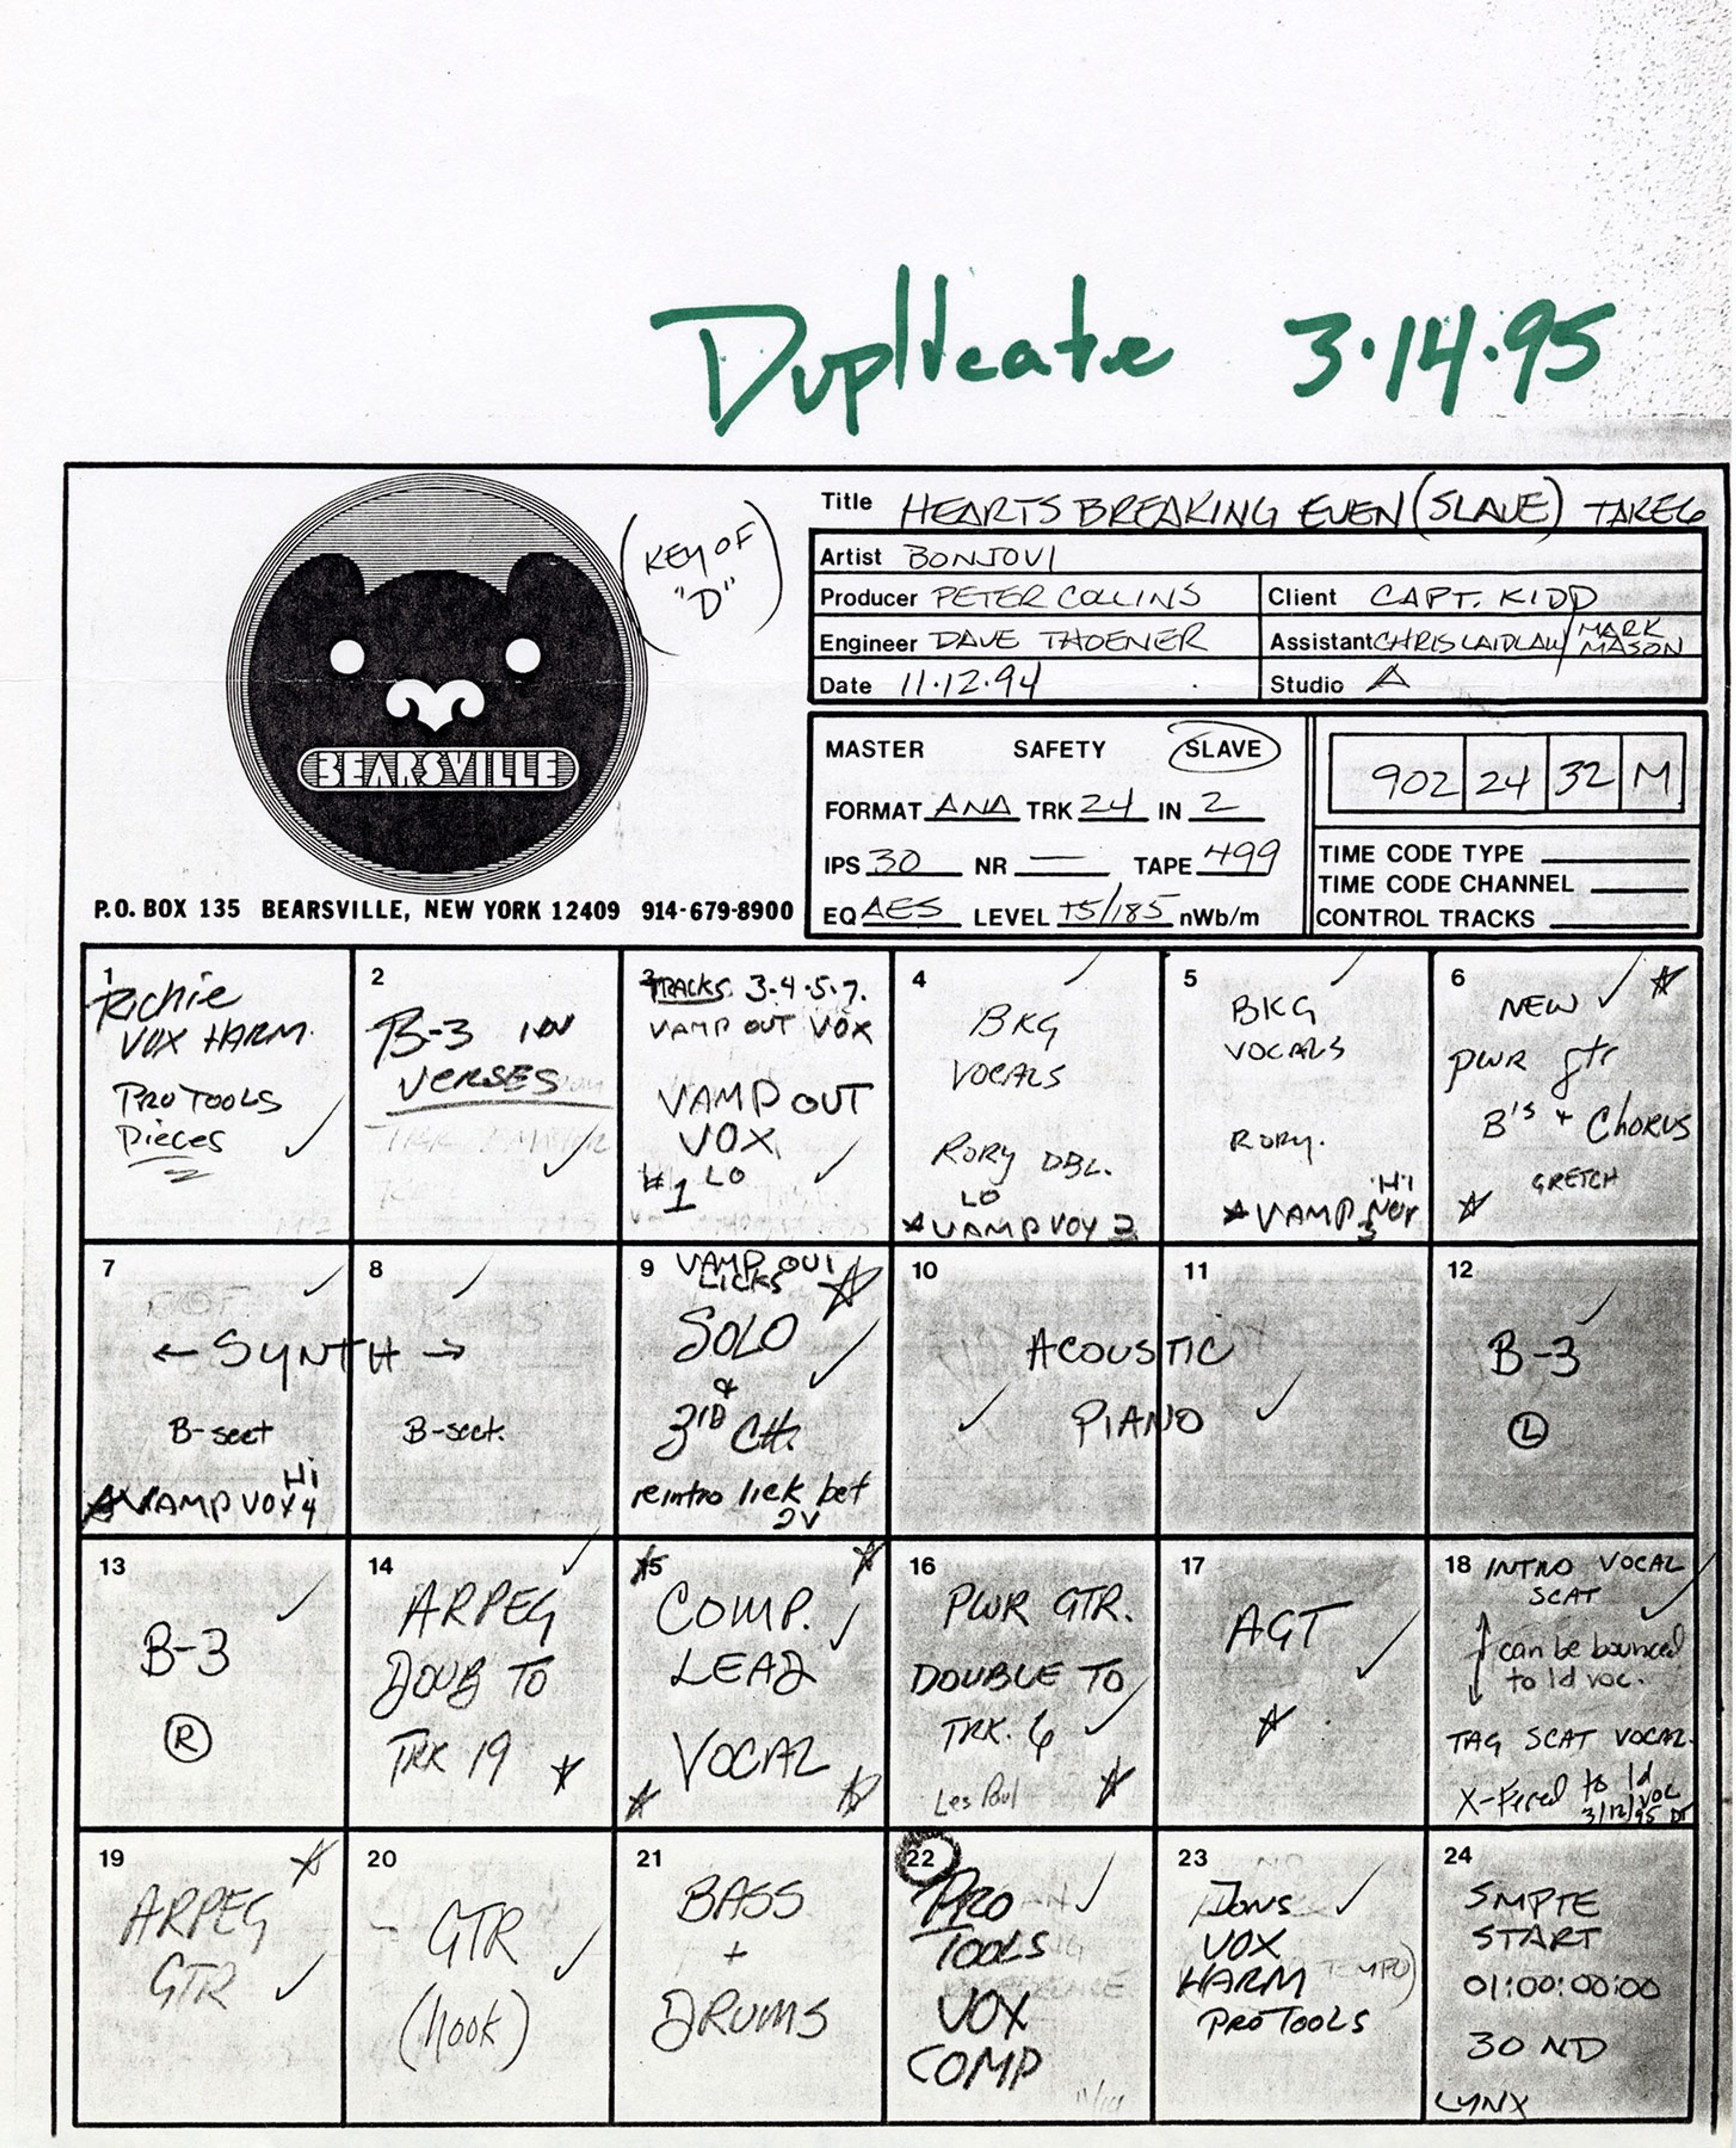 Duplicate 3·14·95
(KEY OF
"D")
BEARSVILLE
P.O. BOX 135 BEARSVILLE, NEW YORK 12409 914-679-8900
Title HEARTS BREAKING EVEN (SLAVE) TAKE 6
Artist BONJOVI
Producer PETER COLLINS
Client CAPT. KIDD
Engineer DAVE THOENER
Assistant CHRIS LAIDLAW/MARK MASON
Date 11·12·94
Studio A
MASTER SAFETY SLAVE
FORMAT ANA TRK 24 IN 2
IPS 30 NR — TAPE 499
EQ AES LEVEL +5/185 nWb/m
902 24 32 M
TIME CODE TYPE
TIME CODE CHANNEL
CONTROL TRACKS
1
Richie
VOX HARM.
PRO TOOLS
Pieces
2
B-3 IN
VERSES
3
TRACKS 3-4-5-7.
VAMP OUT VOX
VAMP OUT
VOX
#1 LO
4
BKG
VOCALS
RORY DBL.
LO
VAMP VOX 2
5
BKG
VOCALS
RORY.
Hi
VAMP
3
6
NEW
PWR gtr
B'S + Chorus
GRETCH
7
← SYNTH →
B-sect
Hi
VAMP VOX 4
8
B-sect.
9
VAMP OUT
LICKS
SOLO
&
3RD CH.
reintro lick bet
2V
10
11
ACOUSTIC
PIANO
12
B-3
L
13
B-3
R
14
ARPEG
DOUB TO
TRK 19
15
COMP.
LEAD
VOCAL
16
PWR GTR.
DOUBLE TO
TRK. 6
Les Paul
17
AGT
18
INTRO VOCAL
SCAT
can be bounced
to ld voc.
TAG SCAT VOCAL
X-Fered to ld
VOC
3/12/95 DT
19
ARPEG
GTR
20
GTR
(hook)
21
BASS
+
DRUMS
22
PRO
TOOLS
VOX
COMP
23
JONS
VOX
HARM TEMPO)
PRO TOOLS
24
SMPTE
START
01:00:00:00
30 ND
LYNX